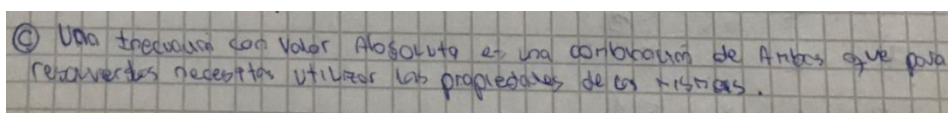 © Una Inecuación con Valor Absoluto es una combinación de Ambas que para
resolverlas necesitas utilizar las propiedades de las mismas.